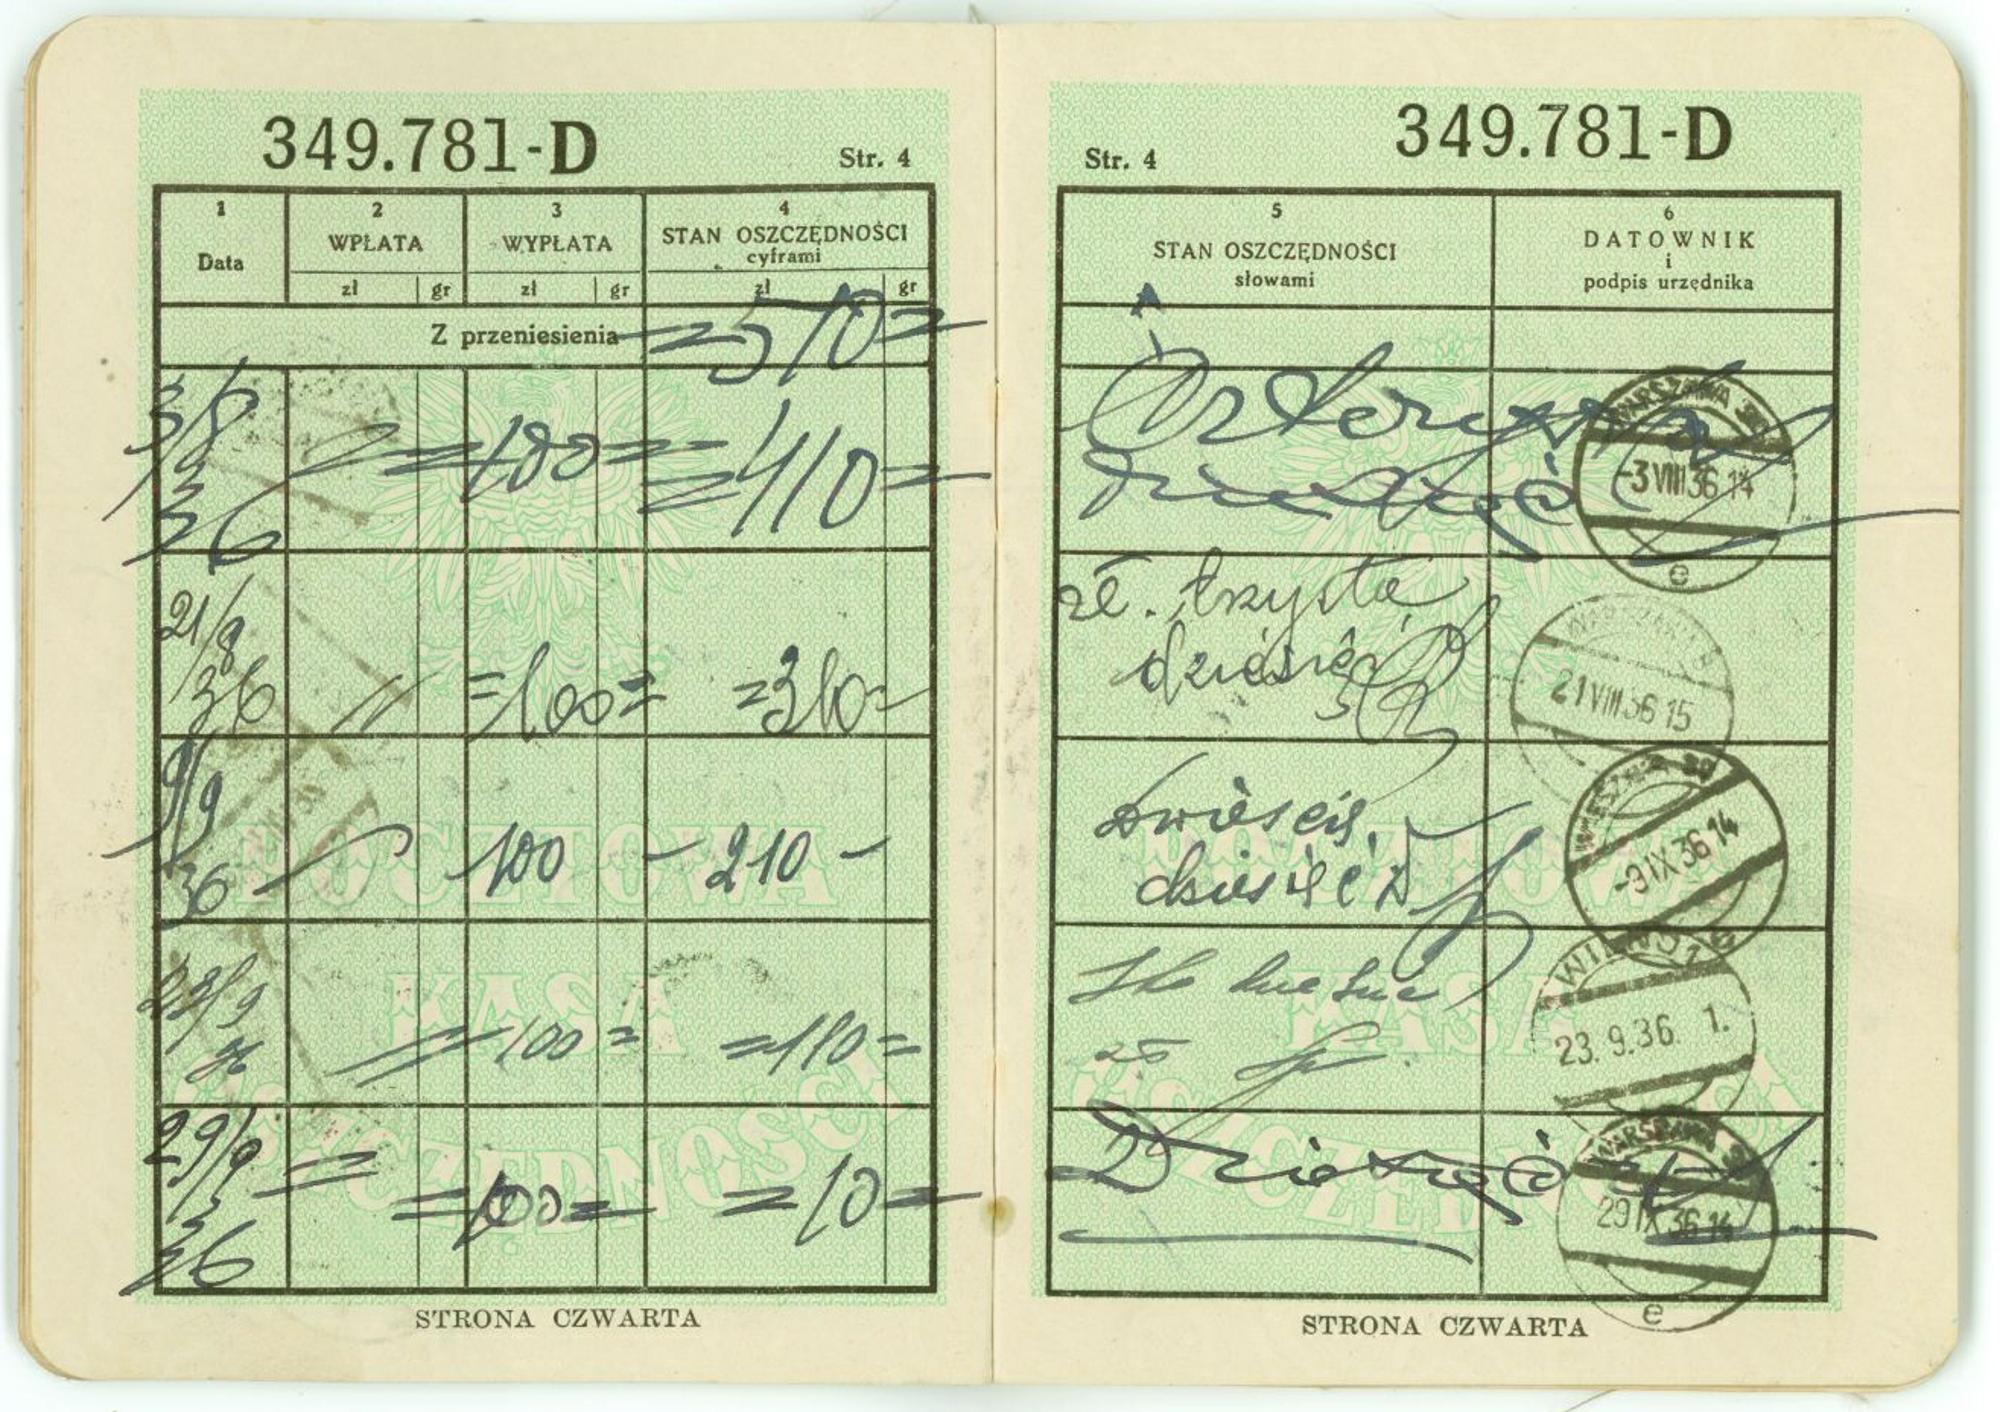 349.781-D
Str. 4
1 Data
2 WPŁATA
3 WYPŁATA
4 STAN OSZCZĘDNOŚCI cyframi
zł gr zł gr zł gr
Z przeniesienia =510=
3/8 36 =100= =410=
21/8 36 =100= =310=
9/9 36 100 - 210 -
23/9 36 =100= =110=
29/9 36 =100= =10=
POCZTOWA
KASA
OSZCZĘDNOŚCI
STRONA CZWARTA
Str. 4
349.781-D
5 STAN OSZCZĘDNOŚCI słowami
6 DATOWNIK i podpis urzędnika
Czterysta
dziesięć
WARSZAWA
-3 VIII 36 14
e
zł. trzysta
dziesięć
WARSZAWA
21 VIII 36 15
dwieście
dziesięć zł
-9 IX 36 14
Sto dziesięć
zł
WILNO 1
23. 9. 36 1.
Dziesięć zł
WARSZAWA
29 IX 36 14
e
POCZTOWA
KASA
OSZCZĘDNOŚCI
STRONA CZWARTA